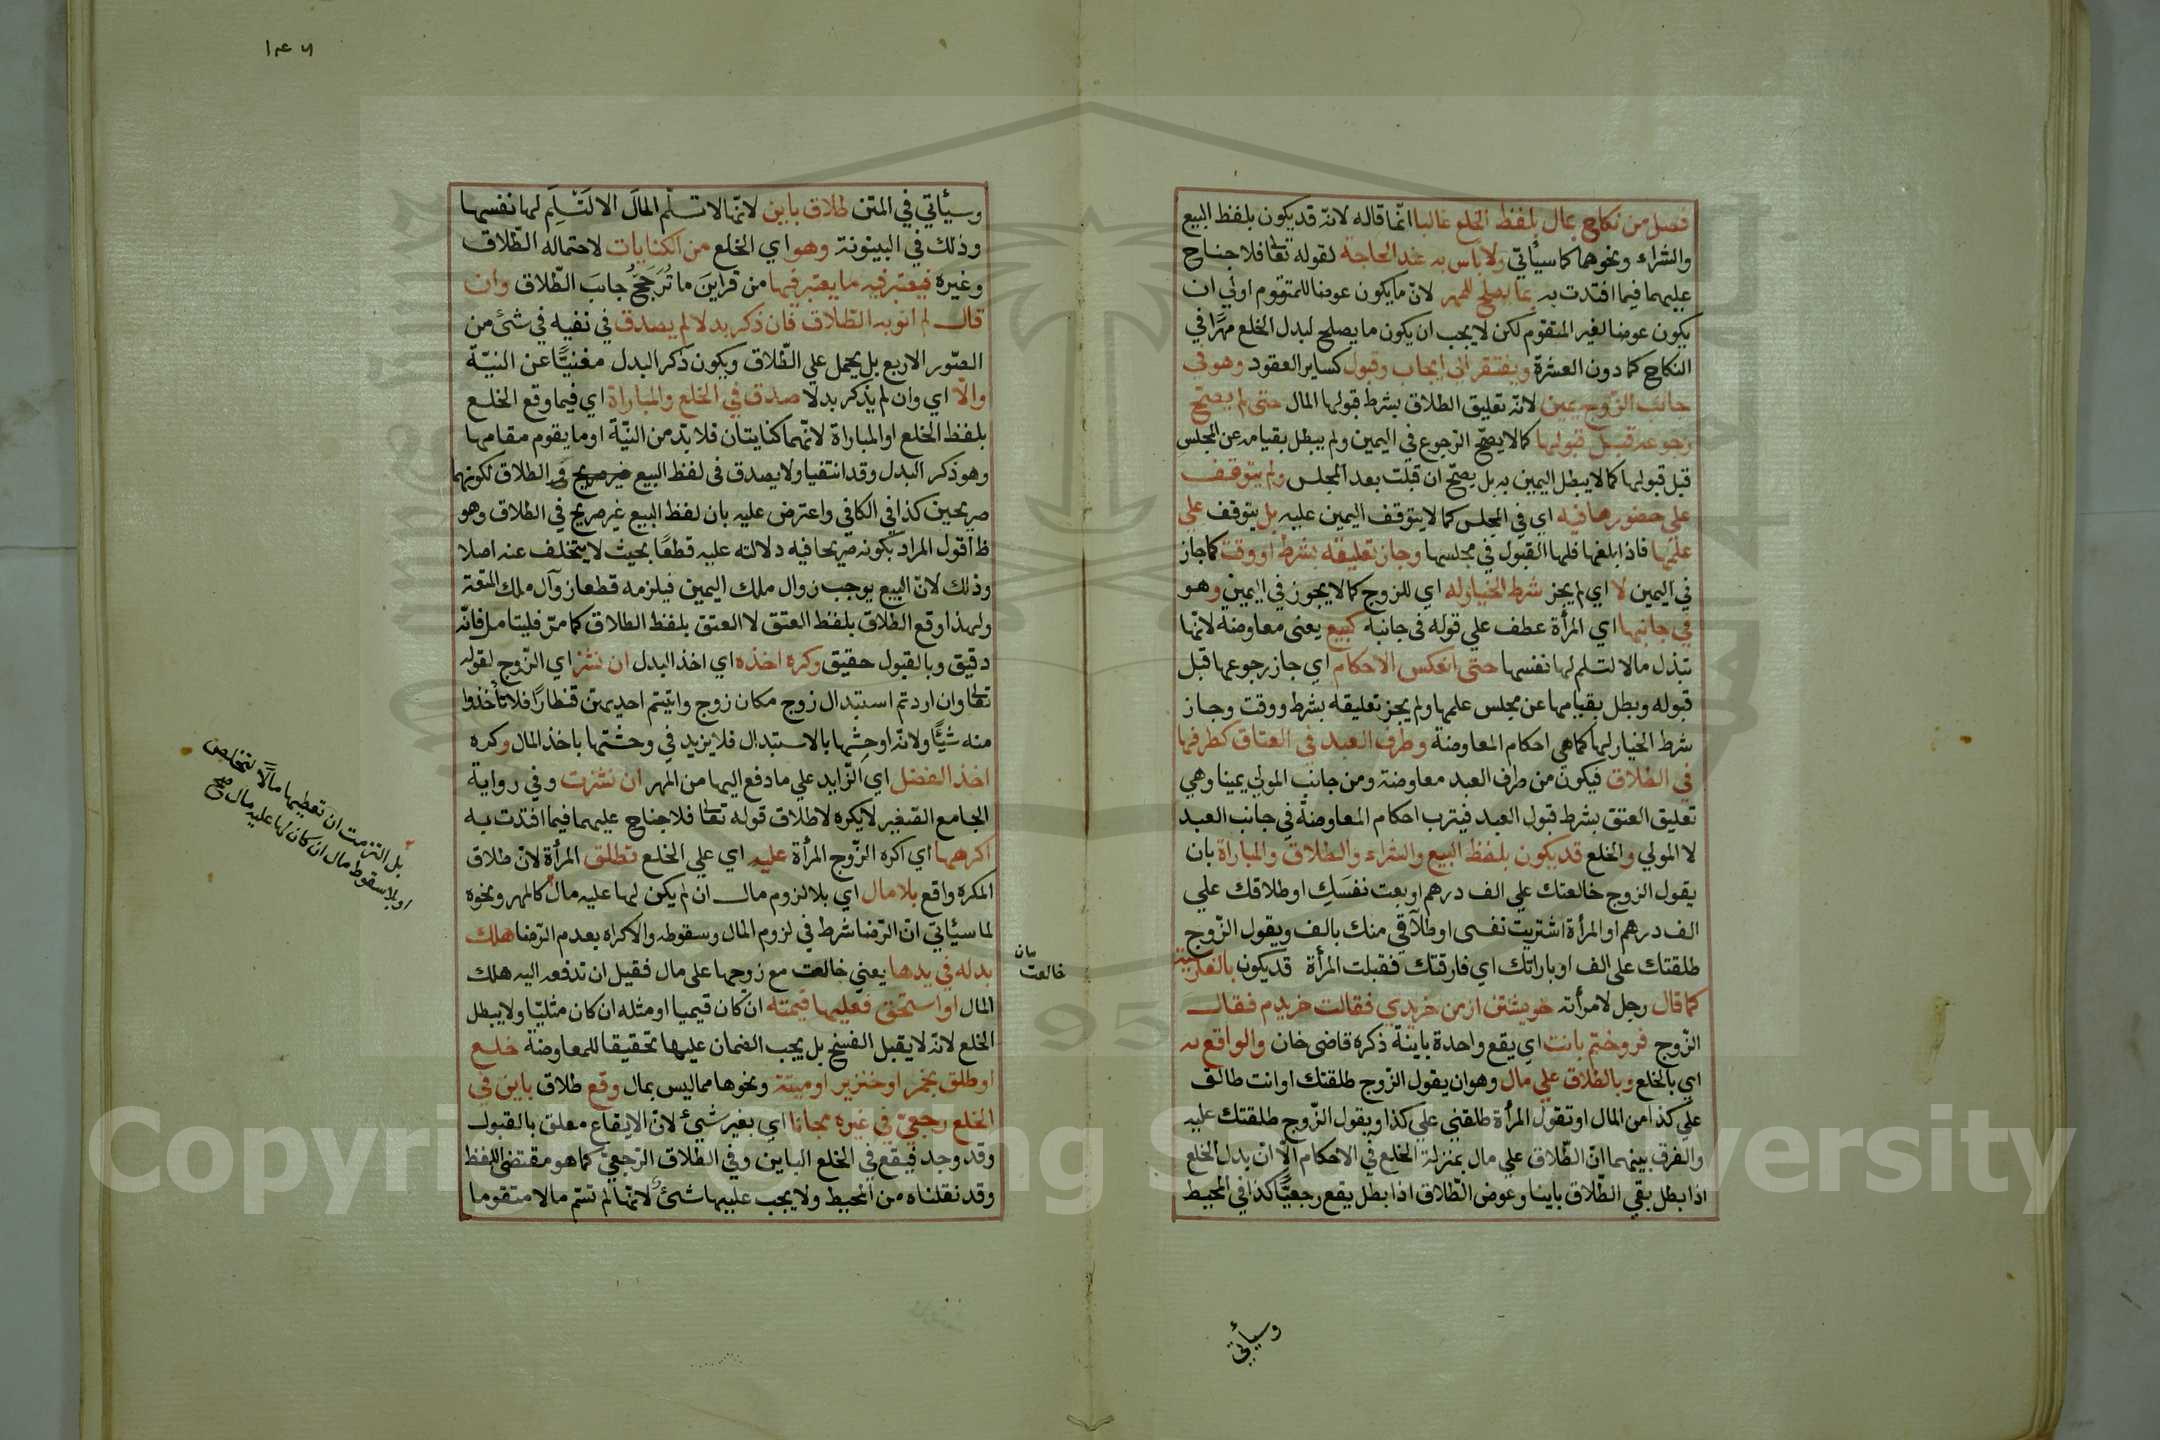 فصل من نكاح بمال بلفظ الخلع غالبا انّما قاله لانّه قد يكون بلفظ البيع
والشراء ونحوهما كما سيأتي ولا باس به عند الحاجة لقوله تعا فلا جناح
عليهما فيما افتدت به بما يصلح للمهر لانّ ما يكون عوضا للمتقوم اولي ان
يكون عوضا لغير المتقوم لكن لا يجب ان يكون ما يصلح لبدل الخلع مهرًا في
النكاح كما دون العشرة ويفتقر الى ايجاب وقبول كساير العقود وهو في
جانب الزّوج يمين لانّه تعليق الطلاق بشرط قبولها المال حتى لم يصحّ
رجوعه قبل قبولها كما لا يصحّ الرّجوع في اليمين ولم يبطل بقيامه عن المجلس
قبل قبولها كما لا يبطل اليمين به بل يصحّ ان قبلت بعد المجلس ولم يتوقف
علي حضورها فيه اي في المجلس كما لا يتوقف اليمين عليه بل يتوقف علي
علمها فاذا بلغها فلها القبول في مجلسها وجاز تعليقه بشرط او وقت كما جاز
في اليمين لا اي لم يجز شرط الخيار له اي للزوج كما لا يجوز في اليمين وهو
في جانبها اي المرأة عطف علي قوله في جانبه كبيع يعنى معاوضة لانّها
تبذل مالا لتسلم لها نفسها حتى انعكس الاحكام اي جاز رجوعها قبل
قبوله وبطل بقيامها عن مجلس علمها ولم يجز تعليقه بشرط ووقت وجاز
شرط الخيار لها كما هي احكام المعاوضة وطرف العبد في العتاق كطرفها
في الطلاق فيكون من طرف العبد معاوضة ومن جانب المولي يمينا وهي
تعليق العتق بشرط قبول العبد فيترب احكام المعاوضة في جانب العبد
لا المولي والخلع قد يكون بلفظ البيع والشراء والطلاق والمباراة بان
يقول الزوج خالعتك علي الف درهم او بعت نفسك او طلاقك علي
الف درهم او المرأة اشتريت نفسى او طلاقي منك بالف ويقول الزّوج
طلقتك على الف او باراتك اي فارقتك فقبلت المرأة قد يكون بالفارسية
كما قال رجل لامرأته خويشتن از من خريدي فقالت خريدم فقال
الزّوج فروختم بانت اي يقع واحدة باينة ذكره قاضى خان والواقع به
اي بالخلع وبالطلاق علي مال وهو ان يقول الزوج طلقتك او انت طالق
علي كذا من المال او تقول المرأة طلقنى علي كذا ويقول الزّوج طلقتك عليه
والفرق بينهما انّ الطّلاق علي مال بمنزلة الخلع في الاحكام الّا انّ بدل الخلع
اذا بطل بقي الطّلاق باينا وعوض الطّلاق اذا بطل يقع رجعيًّا كذا في المحيط
وسيأتي
وسيأتي في المتن طلاق باين لانّها لا تسلّم المال الا لتسلم لها نفسها
وذلك في البينونة وهو اي الخلع من الكنايات لاحتماله الطّلاق
وغيره فيعتبر فيه ما يعتبر فيها من قراين ما تُرَجِّحُ جانبَ الطّلاق وان
قال لم انو به الطّلاق فان ذكر بدلا لم يصدق في نفيه في شئ من
الصّور الاربع بل يحمل علي الطّلاق ويكون ذكر البدل مغنيًّا عن النيّة
والّا اي وان لم يذكر بدلا صدق في الخلع والمباراة اي فيما وقع الخلع
بلفظ الخلع او المباراة لانّهما كنايتان فلا بدّ من النيّة او ما يقوم مقامها
وهو ذكر البدل وقد انتفيا ولا يصدق فى لفظ البيع غير صريح في الطلاق لكونهما
صريحين كذا في الكافي واعترض عليه بان لفظ البيع غير صريح في الطلاق وهو
ظ اقول المراد بكونه صريحا فيه دلالته عليه قطعًا بحيث لا يتخلف عنه اصلا
وذلك لانّ البيع يوجب زوال ملك اليمين فيلزمه قطعا زوال ملك المتعة
ولهذا وقع الطّلاق بلفظ العتق لا العتق بلفظ الطلاق كما مرّ فليتامل فانّه
دقيق وبالقبول حقيق وكره اخذه اي اخذ البدل ان نشز اي الزّوج لقوله
تعا وان اردتم استبدال زوج مكان زوج واتيتم احديهن قنطارًا فلا تأخذوا
منه شيًّا ولانّه اوحشها بالاستبدال فلا يزيد في وحشتها باخذ المال وكره
اخذ الفضل اي الزّايد علي ما دفع اليها من المهر ان نشزت وفي رواية
الجامع الصّغير لا يكره لاطلاق قوله تعا فلا جناح عليهما فيما افتدت به
اكرهها اي اكره الزّوج المرأة عليه اي علي الخلع تطلق المرأة لانّ طلاق
المكره واقع بلا مال اي بلا لزوم مال ان لم يكن لها عليه مال كالمهر ونحوه
لما سيأتي انّ الرّضا شرط في لزوم المال وسقوطه والاكراه يعدم الرّضا هلك
بدله في يدها يعني خالعت مع زوجها على مال فقيل ان تدفعه اليه هلك
المال او استحق فعليها قيمته ان كان قيميا او مثله ان كان مثليّا ولا يبطل
الخلع لانّه لا يقبل الفسخ بل يجب الضمان عليها تحقيقا للمعاوضة خلع
او طلق بخمر او خنزير او ميتة ونحوها مما ليس بمال وقع طلاق باين في
الخلع رجعيّ في غيره مجانا اي بغير شئ لانّ الايقاع معلق بالقبول
وقد وجد فيقع في الخلع الباين وفي الطلاق الرّجعيّ كما هو مقتضى اللفظ
وقد نقلناه من المحيط ولا يجب عليها شئ لانّها لم تسمّ مالا متقوما
بل التزمت ان تعطيها مالًا لتخلص
او بلا سقوط مال ان كان لها عليه مال صح
خالعت
Copyright © King Saud University